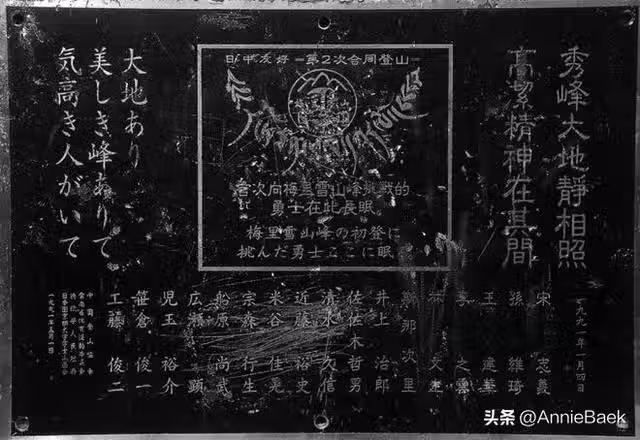 秀峰大地靜相照
高潔精神在其間
日中友好 第2次合同登山
首次向梅里雪山峰挑戦的
勇士在此長眠。
梅里雪山峰の初登に
挑んだ勇士ここに眠
大地あり
美しき峰ありて
気高き人がいて
一九九一年一月四日
宋 志義
孫 維琦
王 建華
之雲
斯那次里
井上 治郎
佐佐木哲男
清水 久信
近藤 裕史
米谷 佳晃
宗森 行生
船原 尚武
広瀬 顕
児玉 裕介
笹倉 俊一
工藤 俊二
中国登山協会
头条 @AnnieBaek